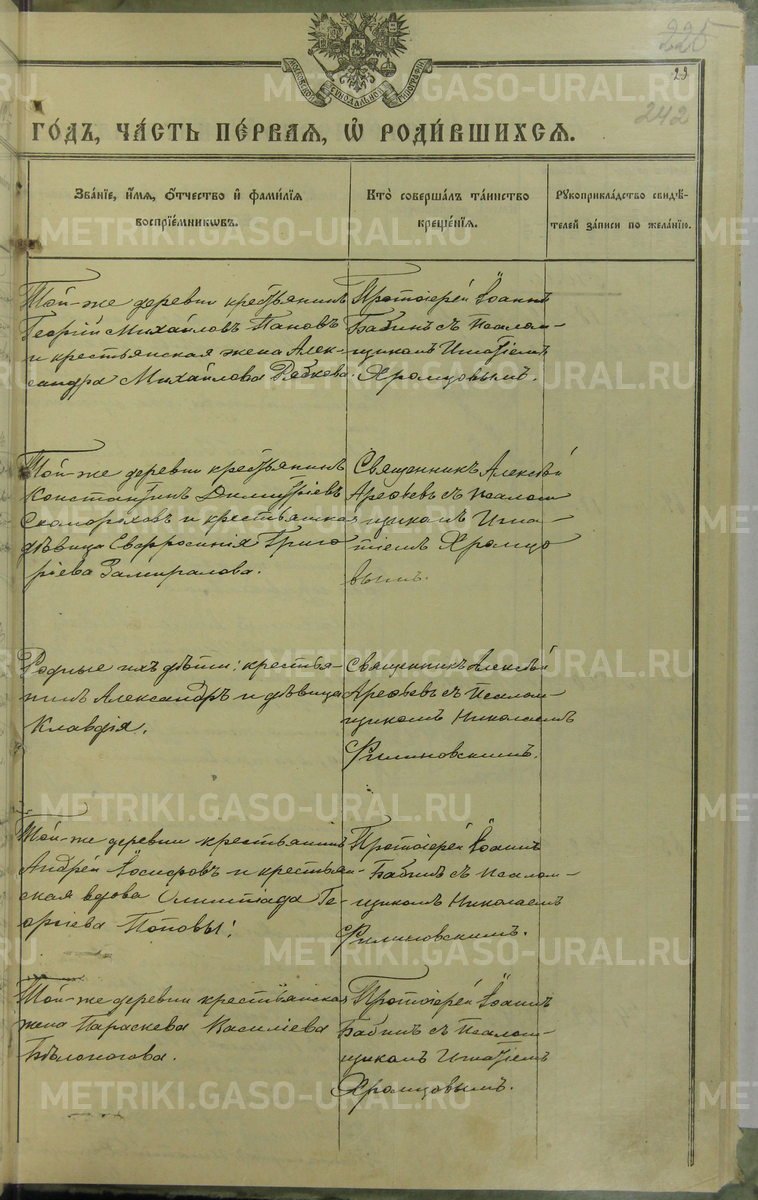 225
МОСКОВСКОЙ СѴНОДАЛЬНОЙ ТИПОГРАФІИ
23
242
ГО́ДЪ, ЧА́СТЬ ПЕ́РВАЯ, Ѡ РОДИ́ВШИХСЯ.
Зва́ніе, и҆́мя, ѻ҆́тчество и҆ фами́лїя воспрїе́мникѡвъ.
Кто̀ соверша́лъ та́инство креще́нїя.
Рꙋкоприкла́дство свидѣ́телей за́писи по жела́нїю.
Той-же деревни крестьянинъ
Георгій Михайловъ Пановъ
и крестьянская жена Алек-
сандра Михайлова
Протоіерей Іоаннъ
Бабинъ съ псалом-
щикомъ Игнатіемъ
Хромцовымъ.
Той-же деревни крестьянинъ
Константинъ Димитріевъ
Скомороховъ и крестьянская
дѣвица Евфросинія Григо
ріева Замиралова.
Священникъ Алексѣй
Арефьевъ съ псалом
щикомъ Игна-
тіемъ Хромцо
вымъ.
Родные ихъ дѣти: крестья-
нинъ Александръ и дѣвица
Клавдія.
Священникъ Алексѣй
Арефьевъ съ псалом-
щикомъ Николаемъ
Филиновскимъ.
Той-же деревни крестьянинъ
Андрей Іосифовъ и крестьян-
ская вдова Олимпіада Ге-
оргіева Поповы.
Протоіерей Іоаннъ
Бабинъ съ псалом-
щикомъ Николаемъ
Филиновскимъ.
Той-же деревни крестьянская
жена Параскева Василіева
Бѣлоногова.
Протоіерей Іоаннъ
Бабинъ съ псалом-
щикомъ Игнатіемъ
Хромцовымъ.
METRIKI.GASO-URAL.RU